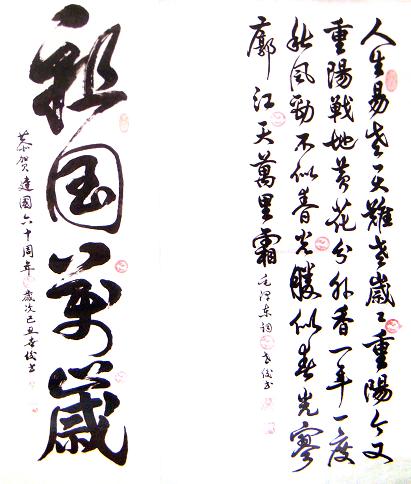 人生易老天難老歲〻重陽今又
重陽戰地黄花分外香一年一度
秋风勁不似春光勝似春光寥
廓江天萬里霜
毛泽东词
祖国萬歲
恭贺建國六十周年歲次己丑